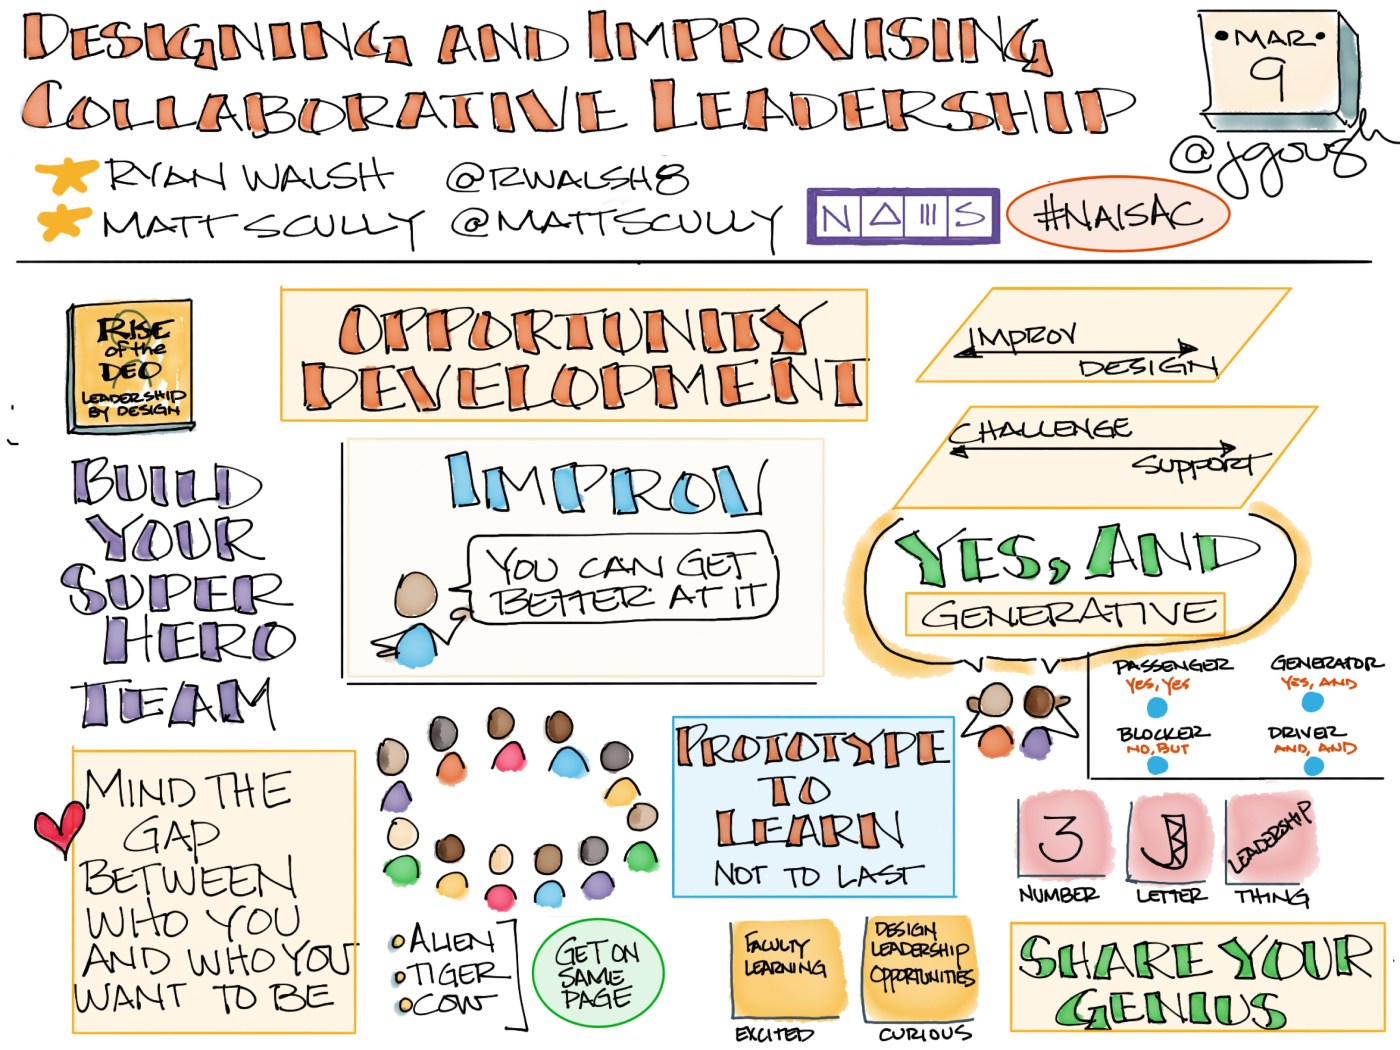 DESIGNING AND IMPROVISING
COLLABORATIVE LEADERSHIP
•MAR•
9
@jgough
RYAN WALSH @RWALSH8
MATT SCULLY @MATTSCULLY
NAIS
#NAISAC
RISE
OF THE
DEO
LEADERSHIP
BY DESIGN
BUILD
YOUR
SUPER
HERO
TEAM
OPPORTUNITY
DEVELOPMENT
IMPROV
DESIGN
CHALLENGE
SUPPORT
IMPROV
YOU CAN GET
BETTER AT IT
YES, AND
GENERATIVE
PASSENGER
YES, YES
GENERATOR
YES, AND
BLOCKER
NO, BUT
DRIVER
AND, AND
MIND THE
GAP
BETWEEN
WHO YOU
AND WHO YOU
WANT TO BE
PROTOTYPE
TO
LEARN
NOT TO LAST
3
NUMBER
J
LETTER
LEADERSHIP
THING
ALIEN
TIGER
COW
GET ON
SAME
PAGE
FACULTY
LEARNING
EXCITED
DESIGN
LEADERSHIP
OPPORTUNITIES
CURIOUS
SHARE YOUR
GENIUS